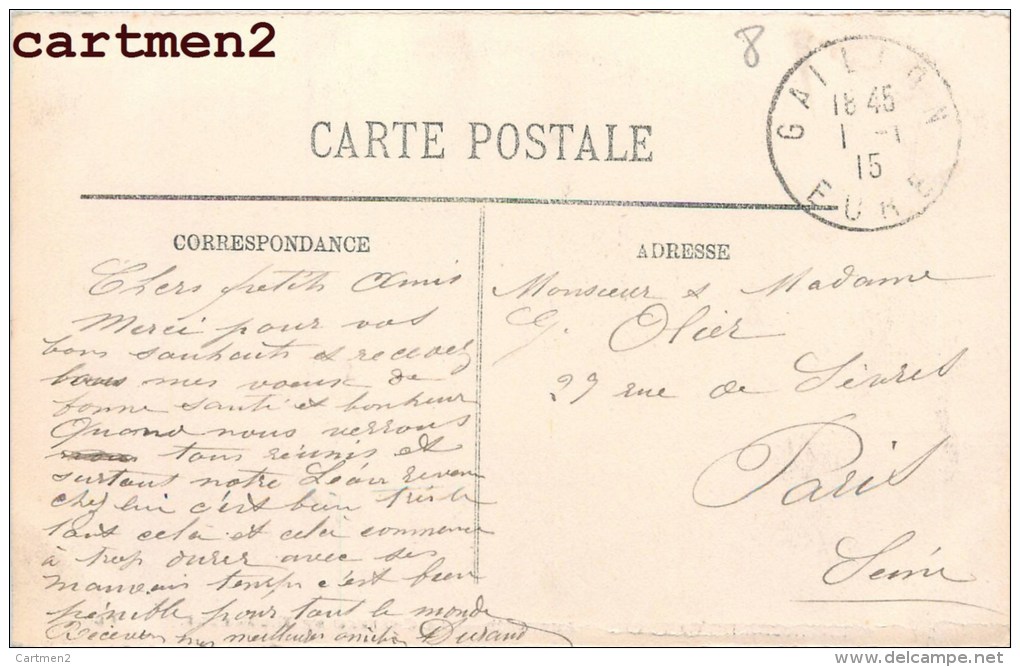 cartmen2
8
GAILLON
18 45
1 - 1
15
EURE
CARTE POSTALE
CORRESPONDANCE
ADRESSE
Chers petits Amis
Merci pour vos
bons souhaits et recevez
mes voeux de
bonne santé et bonheur
Quand nous verrons
tous réunis et
surtout notre Léon revenu
chez lui c'est bien triste
tout cela et cela commence
à trop durer avec ses
mauvais temps c'est bien
pénible pour tout le monde
Recevez mes meilleures amitiés Durand
Monsieur & Madame
G. Olier
27 rue de Sèvres
Paris
Seine
Cartmen2
http://www.delcampe.net